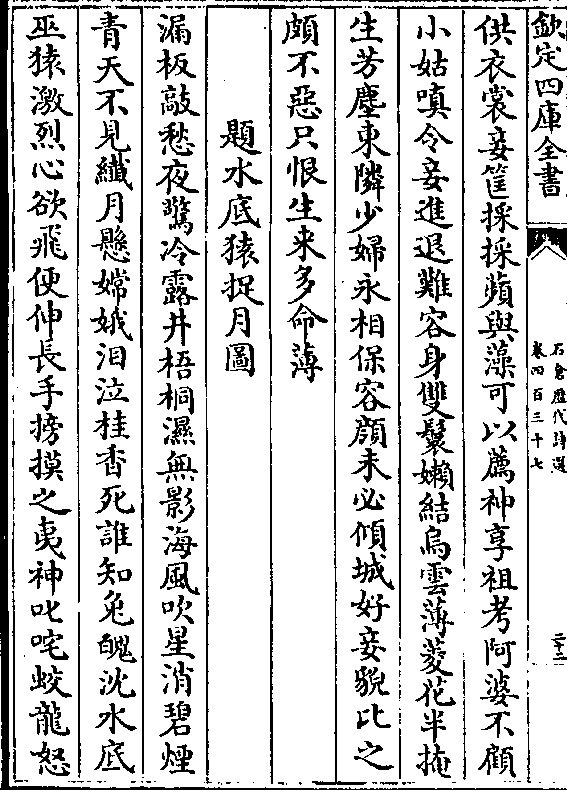 欽定四庫全書
石倉歷代詩選
卷四百三十七
二十二
供衣裳妾筐採採蘋與藻可以薦神享祖考阿婆不顧
小姑嗔令妾進退難容身雙鬟嬾結烏雲薄菱花半掩
生芳塵東隣少婦永相保容顔未必傾城好妾貌比之
頗不惡只恨生来多命薄
題水底猿捉月圖
漏板敲愁夜驚冷露井梧桐濕無影海風吹星消碧煙
青天不見纖月懸嫦娥泪泣桂香死誰知兔魄沈水底
巫猿激烈心欲飛便伸長手搒摸之夷神叱咤蛟龍怒